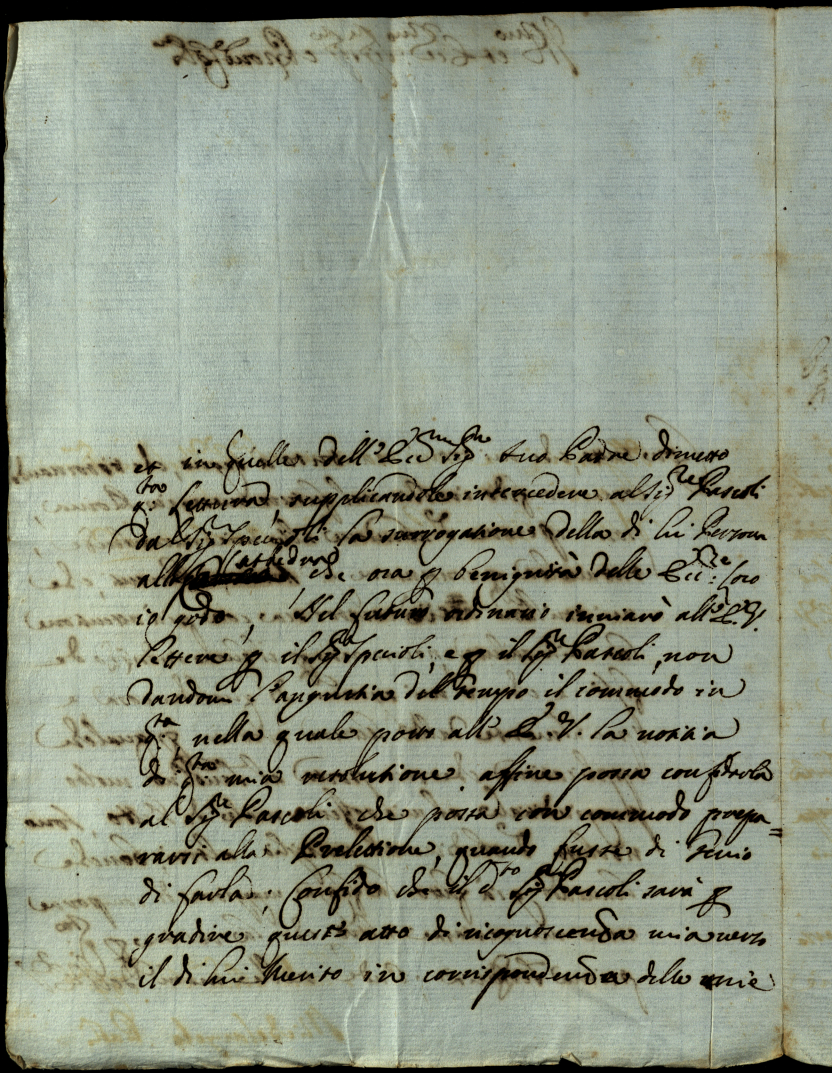 et in quelle dell' Ecc.mo Sig.re suo Padre dimetto
q.ta Lettura, supplicandole intercedere al Sig.re Pascoli
dal Sig.r Spezioli la surrogatione della di lui Persona
alla Cathedra che ora p benignità delle Ecc.ze Loro
io godo; Nel futuro ordinario inviarò all' E. V.
lettere p il Sig.r Spezioli, e p il Sig.re Pascoli, non
dandomi l'angustia del tempo il commodo in
q.ta, nella quale porto all' E. V. la notitia
di q.ta mia resolutione affine possa confidarla
al Sig.re Pascoli, che possa con commodo prepa=
rarsi alla Prelettione, quando fusse di genio
di farla; Confido che il d.to Sig.re Pascoli sarà p
gradire questo atto di ricognoscenza mia verso
il di lui Merito in corrispondenza delle mie